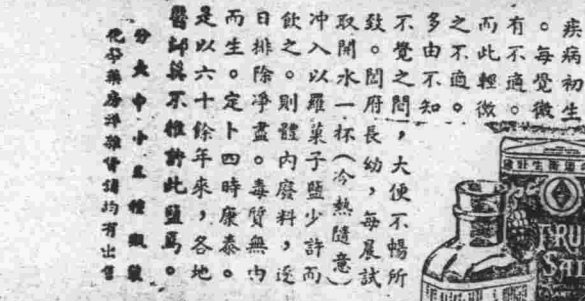 疾病初生
。每覺微
有不適。
而此輕微
之不適。
多由不知
不覺之間，大便不暢所
致。閤府長幼，每晨試
取開水一杯（冷熱隨意）
冲入以羅菓子鹽少許而
飲之。則體內廢料，逐
日排除凈盡。毒質無內
而生。定卜四時康泰。
是以六十餘年來，各地
醫師莫不推許此鹽焉。
分大中小三種瓶裝
化粧藥房洋雜貨鋪均有出售
FRU
SA